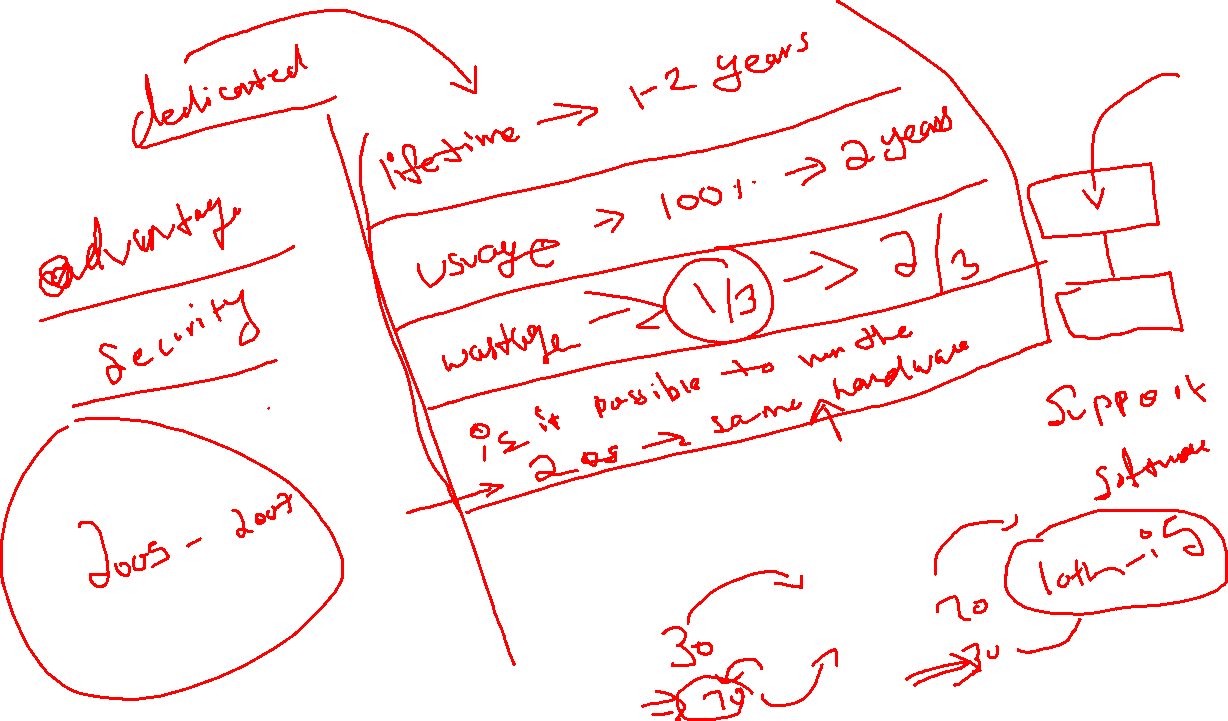 dedicated
advantage
Security
2005 - 2007
lifetime → 1-2 years
usuage → 100% → 2 years
wastage → 1/3 → 2/3
is it possible to run the
2 os → same hardware
Support
software
10th - i5
70
30
30
70